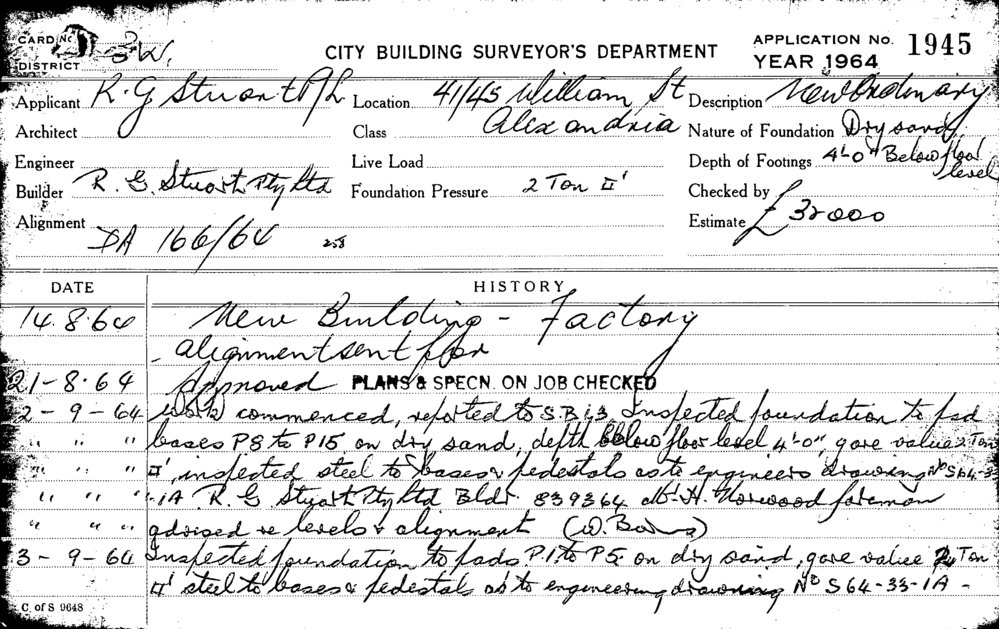 CARD No.
DISTRICT
CITY BUILDING SURVEYOR'S DEPARTMENT
APPLICATION No. 1945
YEAR 1964
Applicant R. G Stuart P/L
Location 41/45 William St
Alexandria
Description New Ordinary
Architect
Class
Nature of Foundation Dry sand
Engineer
Live Load
Depth of Footings 4'-0" Below floor level
Builder R. G. Stuart Pty Ltd
Foundation Pressure 2 Ton □'
Checked by
Alignment
Estimate £32000
DA 166/64 258
DATE HISTORY
14.8.64 New Building - Factory
- alignment sent for
21-8.64 Approved PLANS & SPECN. ON JOB CHECKED
2-9-64 Work commenced, reported to S.B.I.3 Inspected foundation to pad
" " " bases P8 to P15 on dry sand, depth below floor level 4'-0", gave value 2 Ton
" " " □', inspected steel to bases & pedestals as to engineers drawing No S64-33
" " " -1A R. G Stuart Pty Ltd Bldr 839364 Mr H. Norwood foreman
" " " advised re levels & alignment (W.
3-9-64 Inspected foundation to pads, P.1 to P5 on dry sand, gave value 2 Ton
□' steel to bases & pedestals as to engineering drawing No S64-33-1A -
C. of S 9648